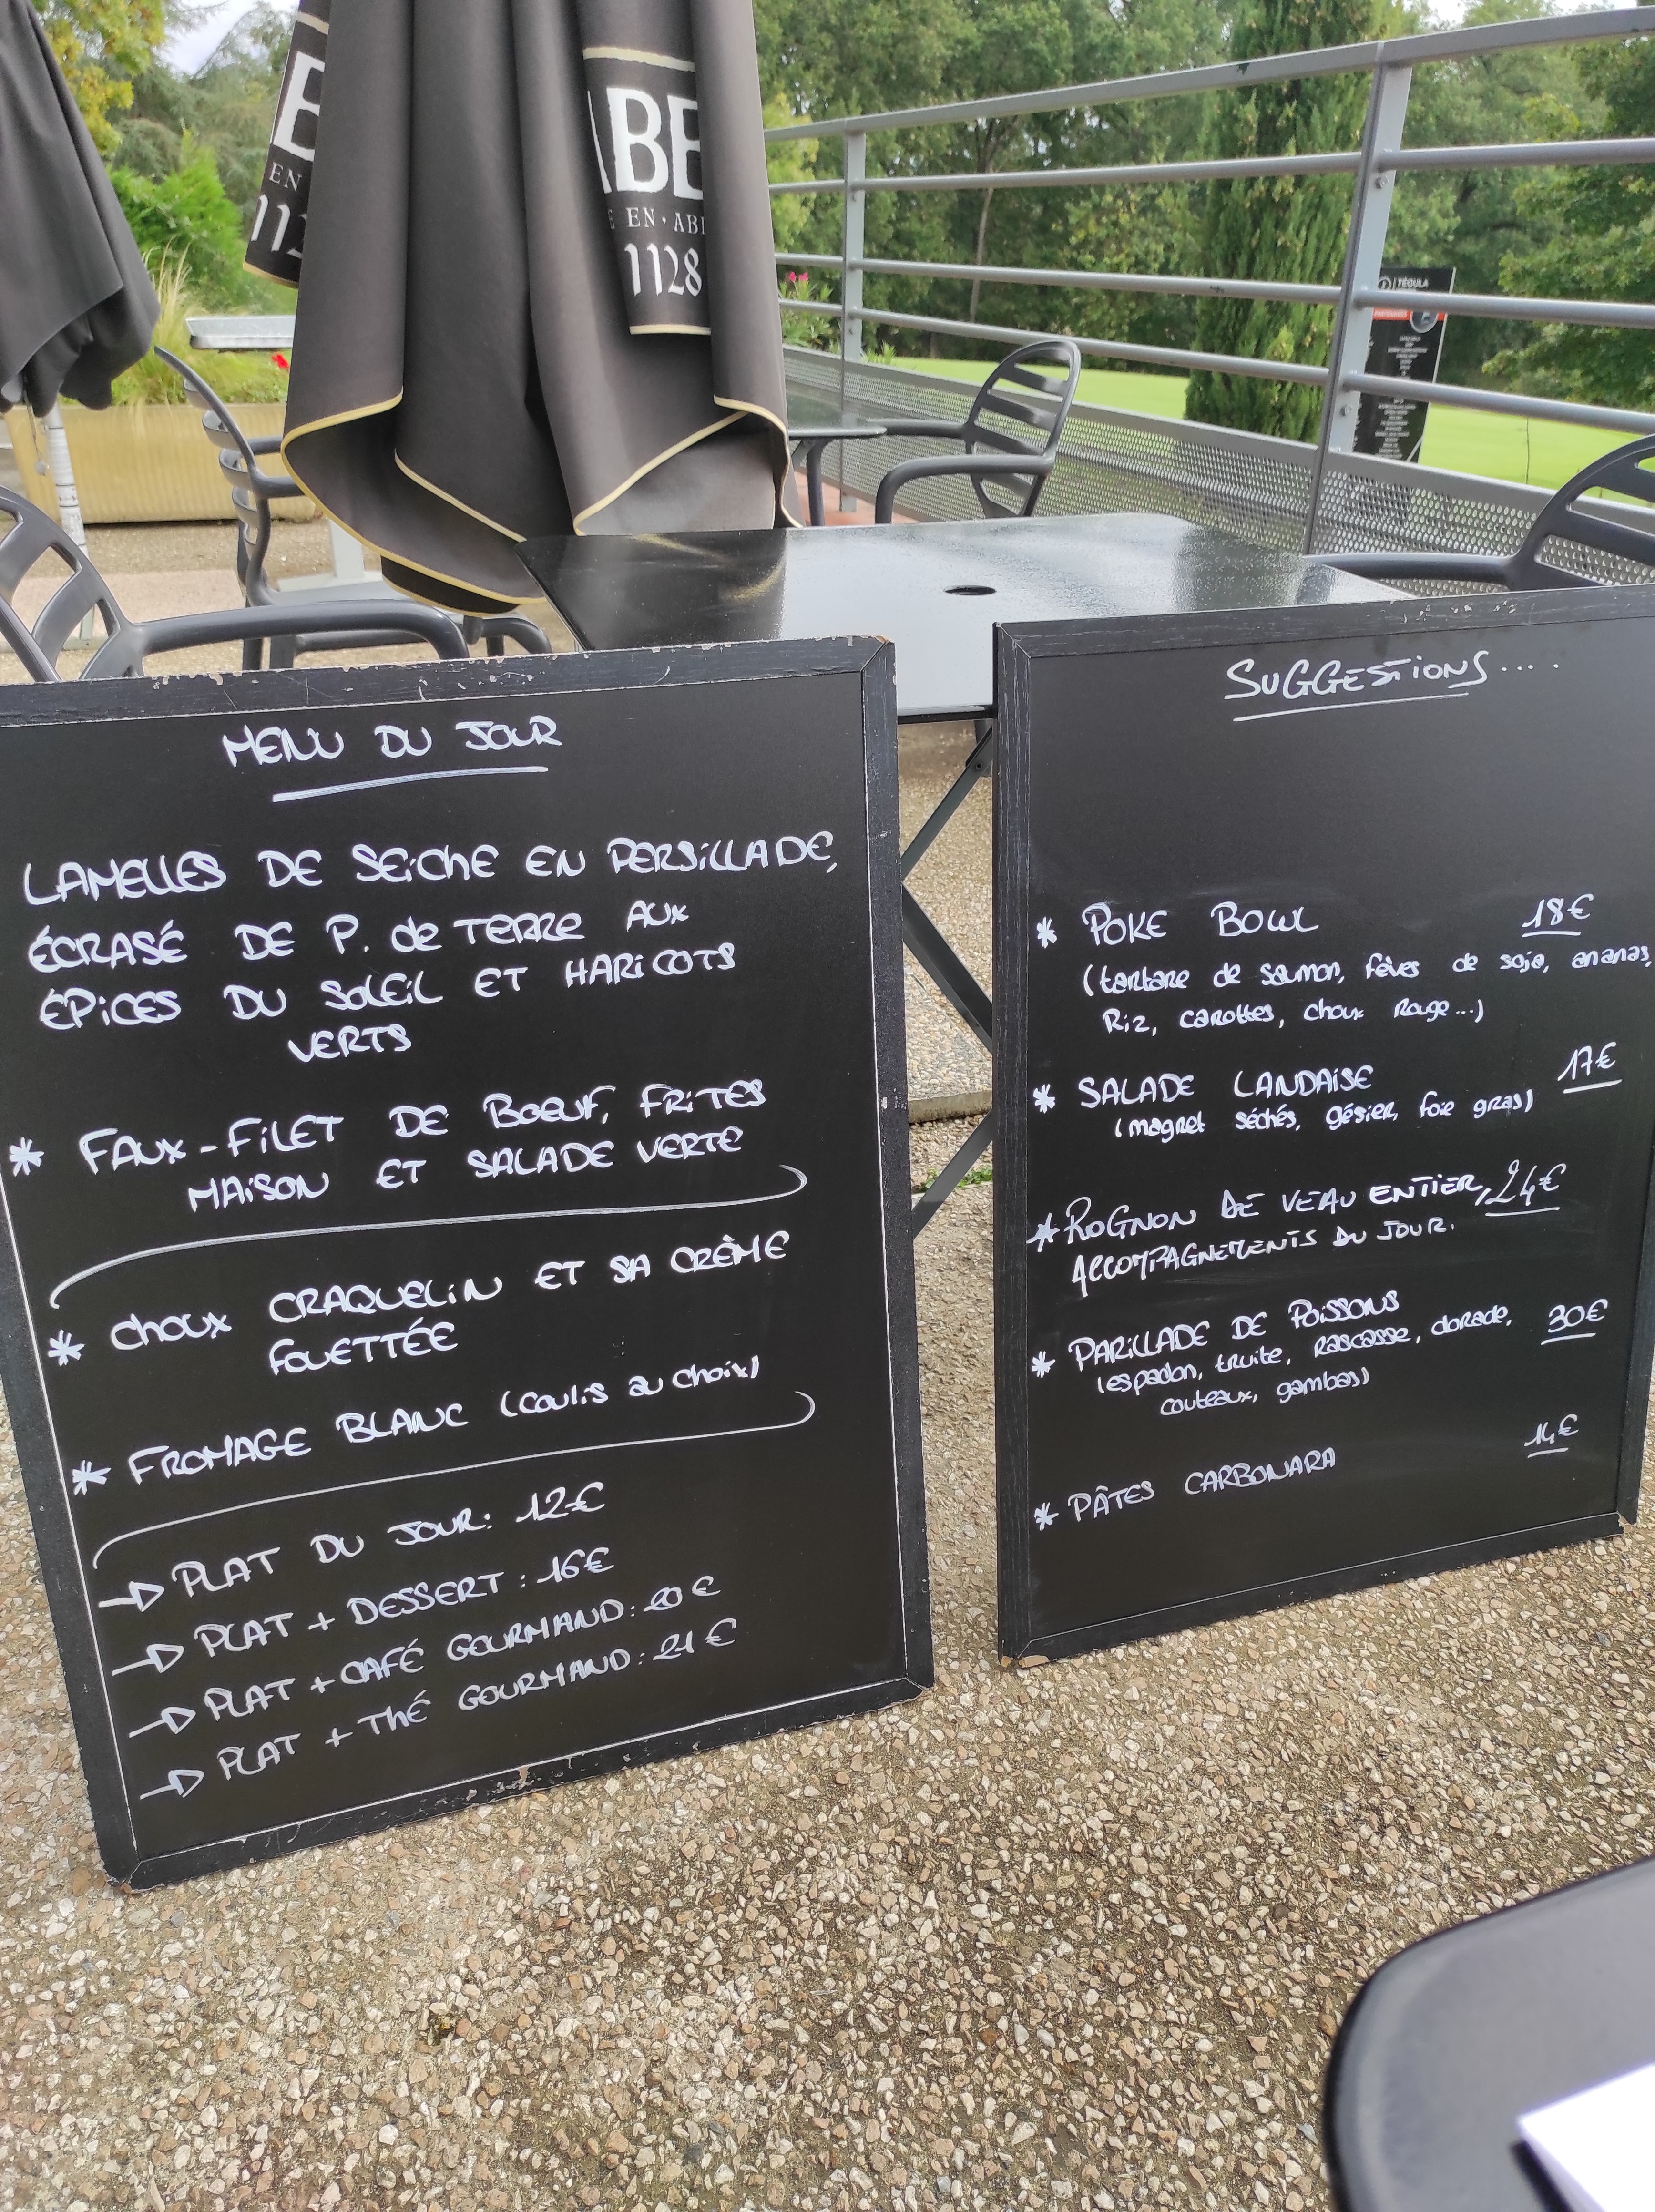 ABE
EN
E EN·ABB
112
1128
TÉGULA
MENU DU JOUR
LAMELLES DE SEICHE EN PERSILLADE,
ÉCRASÉ DE P. de TERRE AUX
ÉPICES DU SOLEIL ET HARICOTS
VERTS
* FAUX-FILET DE BOEUF, FRITES
MAISON ET SALADE VERTE
* CHOUX CRAQUELIN ET SA CRÈME
FOUETTÉE
* FROMAGE BLANC (coulis au choix)
→ PLAT DU JOUR: 12€
→ PLAT + DESSERT: 16€
→ PLAT + CAFÉ GOURMAND: 20€
→ PLAT + THÉ GOURMAND: 21€
SUGGESTIONS.....
* POKE BOWL 18€
(tartare de saumon, fèves de soja, ananas,
Riz, carottes, choux Rouge...)
* SALADE LANDAISE 17€
(magret séchés, gésier, foie gras)
* ROGNON DE VEAU ENTIER, 24€
ACCOMPAGNEMENTS DU JOUR.
* PARILLADE DE POISSONS 30€
(espadon, truite, Rascasse, dorade,
couteaux, gambas)
* PÂTES CARBONARA 14€